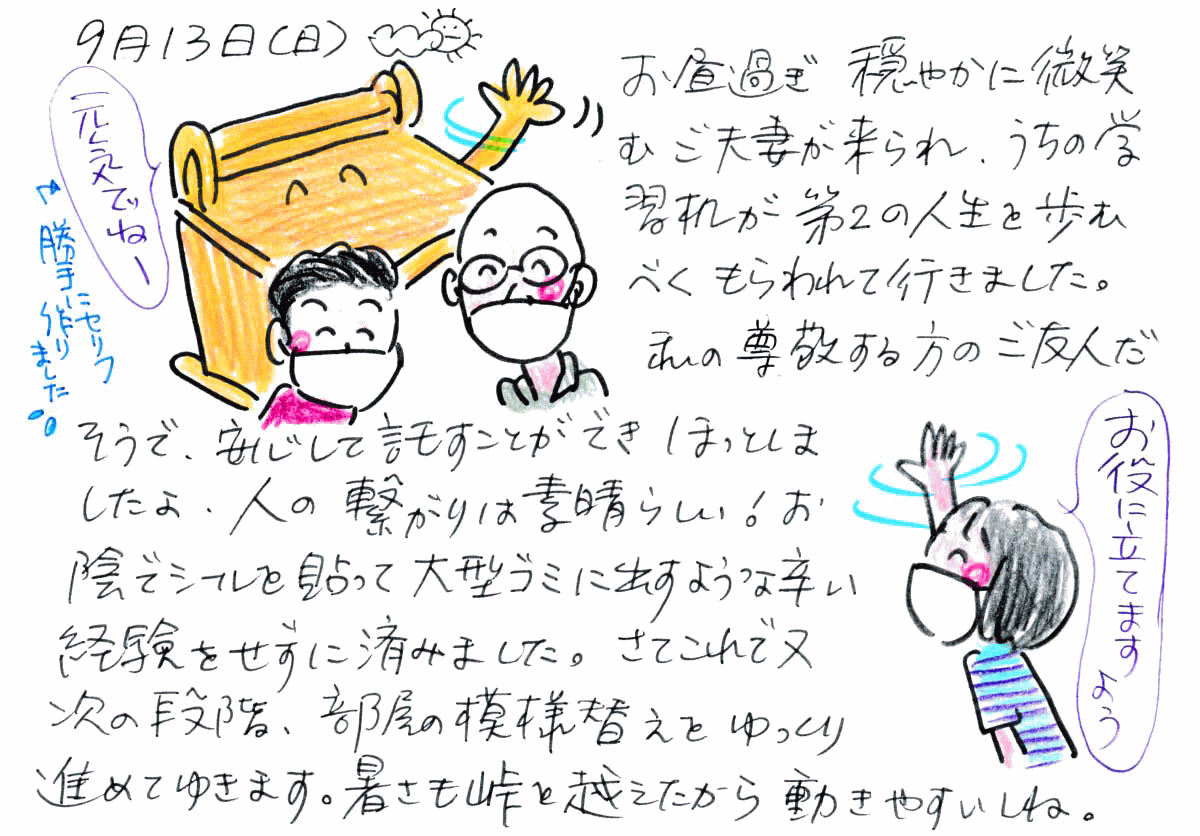 9月13日(日)
お昼過ぎ 穏やかに微笑
むご夫妻が来られ、うちの学
習机が第2の人生を歩む
べくもらわれて行きました。
私の尊敬する方のご友人だ
そうで、安心して託すことができほっとしま
したよ、人の繋がりは素晴らしい!お
陰でシールを貼って大型ゴミに出すような辛い
経験をせずに済みました。さてこれで又
次の段階、部屋の模様替えをゆっくり
進めてゆきます。暑さも峠を越えたから動きやすいしね。
元気でねー
勝手にセリフ
作り
ました
お役に立てますよう